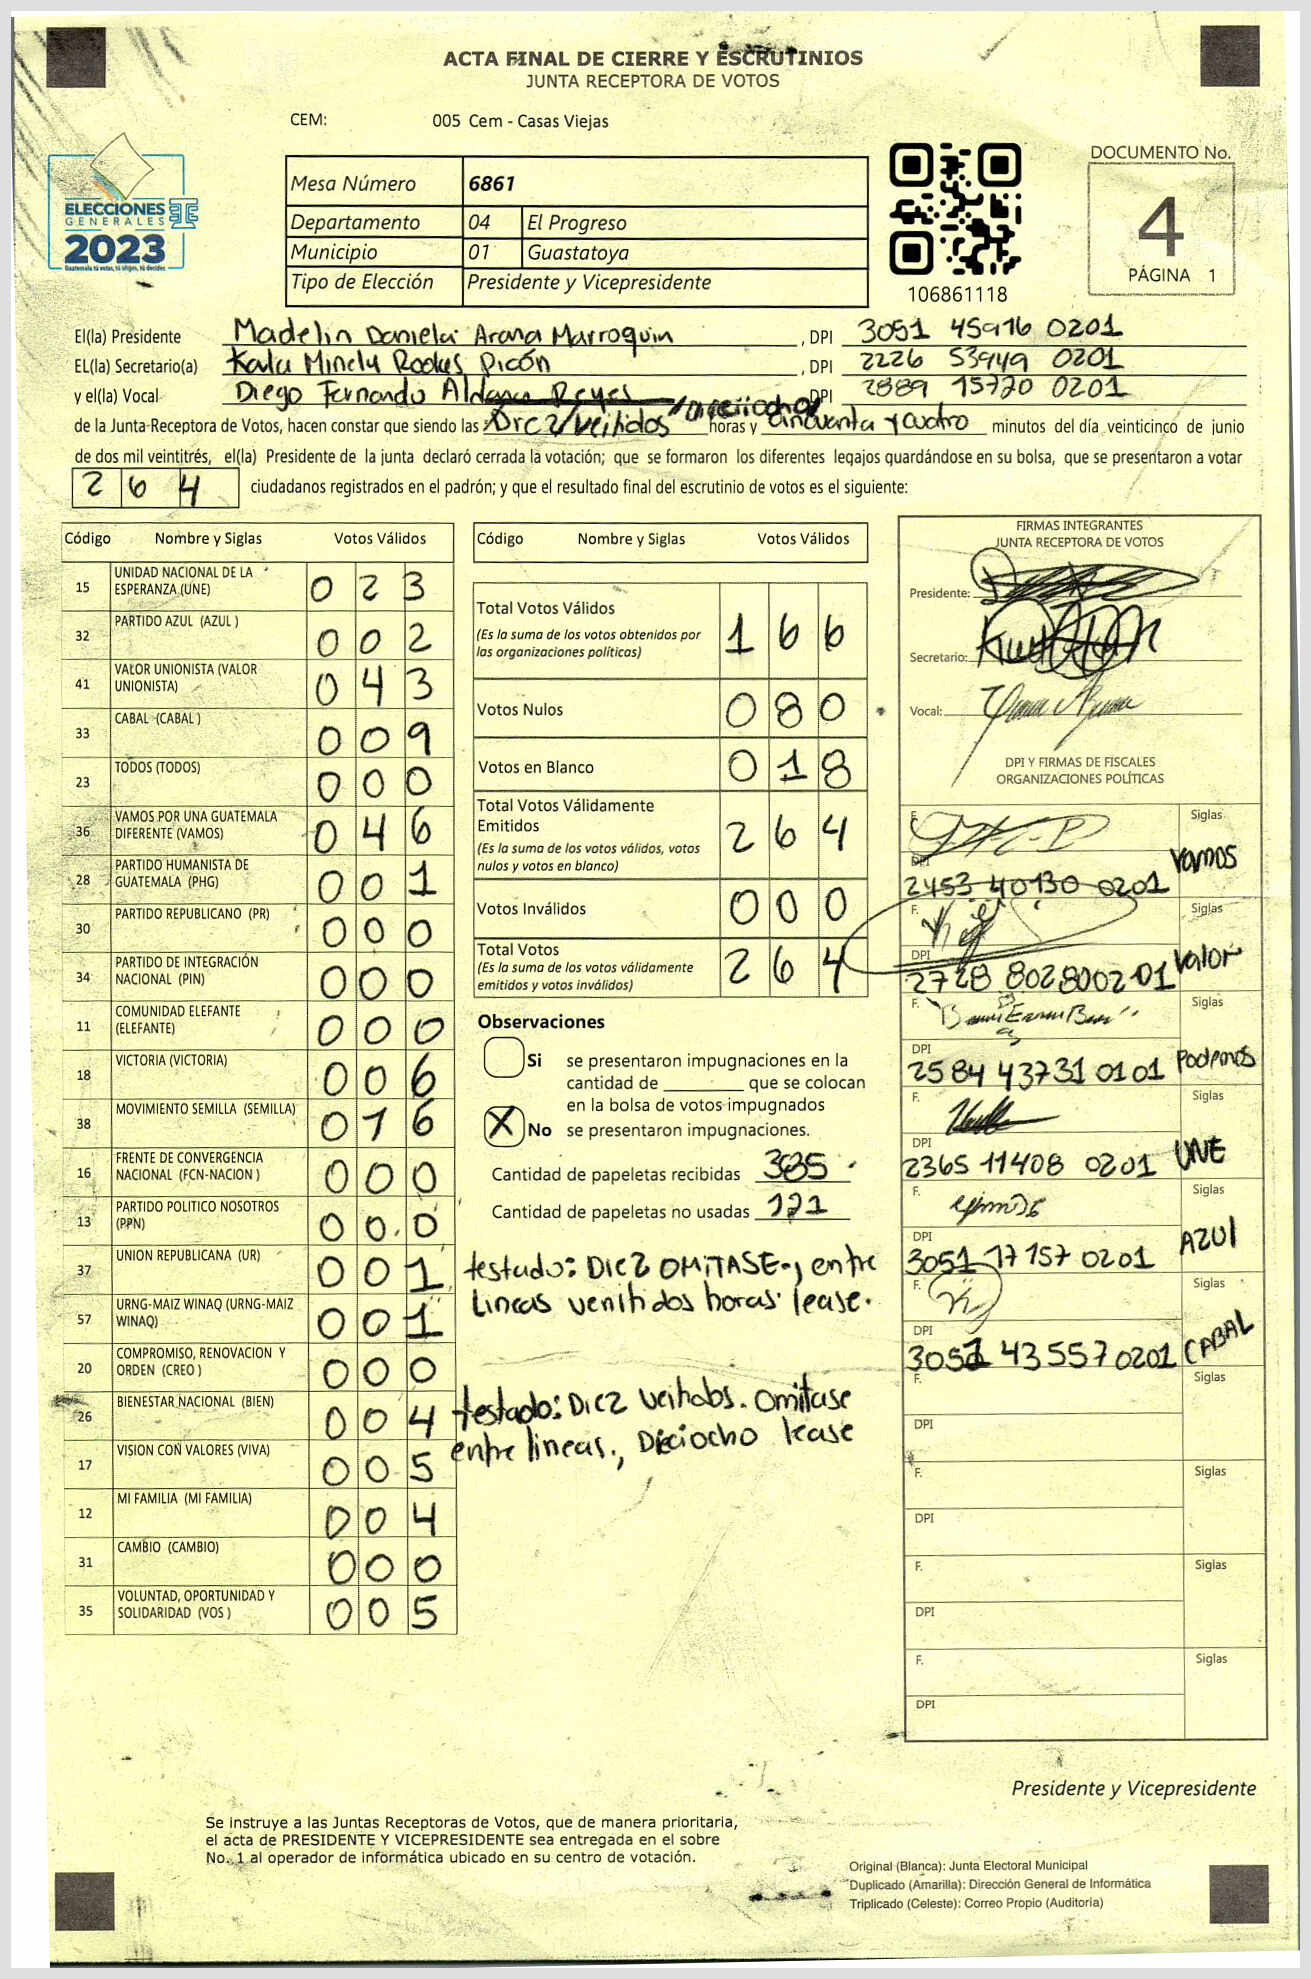 ACTA FINAL DE CIERRE Y ESCRUTINIOS
JUNTA RECEPTORA DE VOTOS
CEM: 005 Cem - Casas Viejas
ELECCIONES
GENERALES
2023
Guatemala tú votas, tú eliges, tú decides
Mesa Número 6861
Departamento 04 El Progreso
Municipio 01 Guastatoya
Tipo de Elección Presidente y Vicepresidente
106861118
DOCUMENTO No.
4
PÁGINA 1
El(la) Presidente Madelin Daniela Arana Marroquin , DPI 3051 45916 0201
EL(la) Secretario(a) , DPI 2226 53949 0201
y el(la) Vocal Diego Fernando Aldana Reyes DPI 2889 15770 0201
Dieciocho
de la Junta Receptora de Votos, hacen constar que siendo las Diez/veitidos horas y cincuenta y cuatro minutos del día veinticinco de junio
de dos mil veintitrés, el(la) Presidente de la junta declaró cerrada la votación; que se formaron los diferentes legajos quardándose en su bolsa, que se presentaron a votar
264 ciudadanos registrados en el padrón; y que el resultado final del escrutinio de votos es el siguiente:
Código Nombre y Siglas Votos Válidos
15 UNIDAD NACIONAL DE LA ESPERANZA (UNE) 023
32 PARTIDO AZUL (AZUL ) 002
41 VALOR UNIONISTA (VALOR UNIONISTA) 043
33 CABAL (CABAL ) 009
23 TODOS (TODOS) 000
36 VAMOS POR UNA GUATEMALA DIFERENTE (VAMOS) 046
28 PARTIDO HUMANISTA DE GUATEMALA (PHG) 001
30 PARTIDO REPUBLICANO (PR) 000
34 PARTIDO DE INTEGRACIÓN NACIONAL (PIN) 000
11 COMUNIDAD ELEFANTE (ELEFANTE) 000
18 VICTORIA (VICTORIA) 006
38 MOVIMIENTO SEMILLA (SEMILLA) 016
16 FRENTE DE CONVERGENCIA NACIONAL (FCN-NACION ) 000
13 PARTIDO POLITICO NOSOTROS (PPN) 000
37 UNION REPUBLICANA (UR) 001
57 URNG-MAIZ WINAQ (URNG-MAIZ WINAQ) 001
20 COMPROMISO, RENOVACION Y ORDEN (CREO ) 000
26 BIENESTAR NACIONAL (BIEN) 004
17 VISION CON VALORES (VIVA) 005
12 MI FAMILIA (MI FAMILIA) 004
31 CAMBIO (CAMBIO) 000
35 VOLUNTAD, OPORTUNIDAD Y SOLIDARIDAD (VOS ) 005
Código Nombre y Siglas Votos Válidos
Total Votos Válidos 166
(Es la suma de los votos obtenidos por
las organizaciones políticas)
Votos Nulos 080
Votos en Blanco 018
Total Votos Válidamente
Emitidos 264
(Es la suma de los votos válidos, votos
nulos y votos en blanco)
Votos Inválidos 000
Total Votos 264
(Es la suma de los votos válidamente
emitidos y votos inválidos)
Observaciones
Si se presentaron impugnaciones en la
cantidad de ________ que se colocan
en la bolsa de votos impugnados
X No se presentaron impugnaciones.
Cantidad de papeletas recibidas 385
Cantidad de papeletas no usadas 121
testado: DIEZ OMITASE., entre
Lineas venitidos horas lease.
testado: Diez veitidos. omitase
entre lineas., Dieciocho lease
FIRMAS INTEGRANTES
JUNTA RECEPTORA DE VOTOS
Presidente:
Secretario:
Vocal:
DPI Y FIRMAS DE FISCALES
ORGANIZACIONES POLÍTICAS
F. Siglas
DPI 2453 40130 0201 Vamos
F. Siglas
DPI 2728 80280 0201 Valor
F. Siglas
DPI 2584 43731 0101 Podemos
F. Siglas
DPI 2365 11408 0201 UNE
F. Siglas
DPI 3051 17157 0201 AZUl
F. Siglas
DPI 3051 43557 0201 CABAL
F. Siglas
DPI
F. Siglas
DPI
F. Siglas
DPI
F. Siglas
DPI
Presidente y Vicepresidente
Se instruye a las Juntas Receptoras de Votos, que de manera prioritaria,
el acta de PRESIDENTE Y VICEPRESIDENTE sea entregada en el sobre
No. 1 al operador de informática ubicado en su centro de votación.
Original (Blanca): Junta Electoral Municipal
Duplicado (Amarilla): Dirección General de Informática
Triplicado (Celeste): Correo Propio (Auditoría)